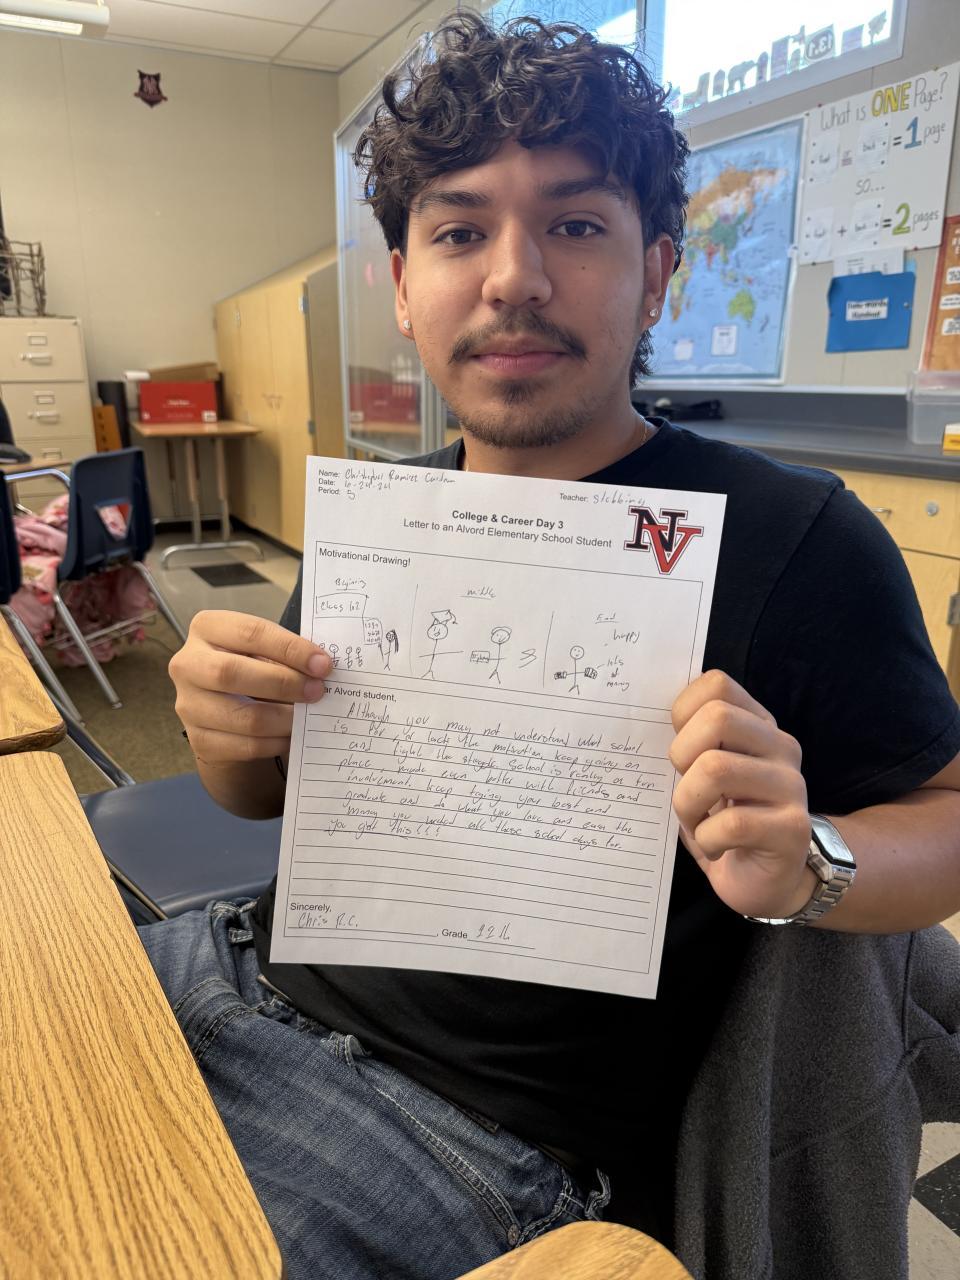 13.1
What is ONE Page?
= 1 page
SO...
+ = 2 pages
Name: Christopher Ramirez
Date: 10-24-24
Period: 5
Teacher: Stebbins
College & Career Day 3
Letter to an Alvord Elementary School Student
NV
Motivational Drawing!
Beginning
Class 102
middle
End
happy
lots
of
money
ar Alvord student,
Although you may not understand what school
is for or lack the motivation, keep going on
and fight the struggle. School is really a fun
place, made even better with friends and
involvement. keep trying your best and
graduate and do what you love and earn the
money you worked all these school days for.
you got this!!!
Sincerely,
Chris R.C. , Grade 12th